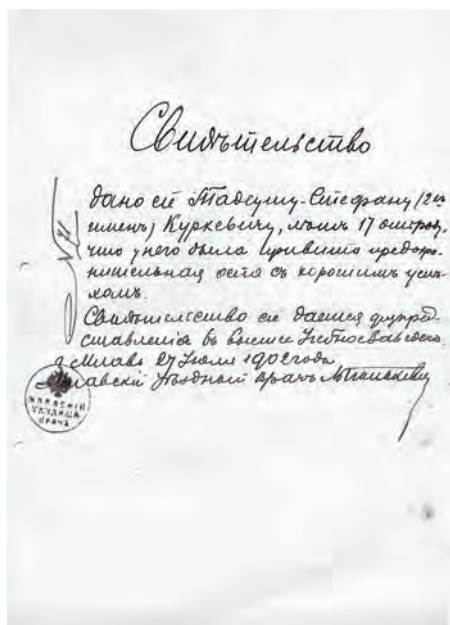 Свидѣтельство
дано сіе Тадеушу-Стефану (2хъ
именъ) Куркевичу, лѣтъ 17 отъ роду,
что у него была привита предохра-
нительная оспа съ хорошимъ успѣ-
хомъ.
Свидѣтельство сіе дается для пред-
ставленія въ высшее Учебное Заведеніе.
г. Млава 27 Іюля 1902 года
Млавскій Уѣздный врачъ
МЛАВСКІЙ
УѢЗДНЫЙ
ВРАЧЪ